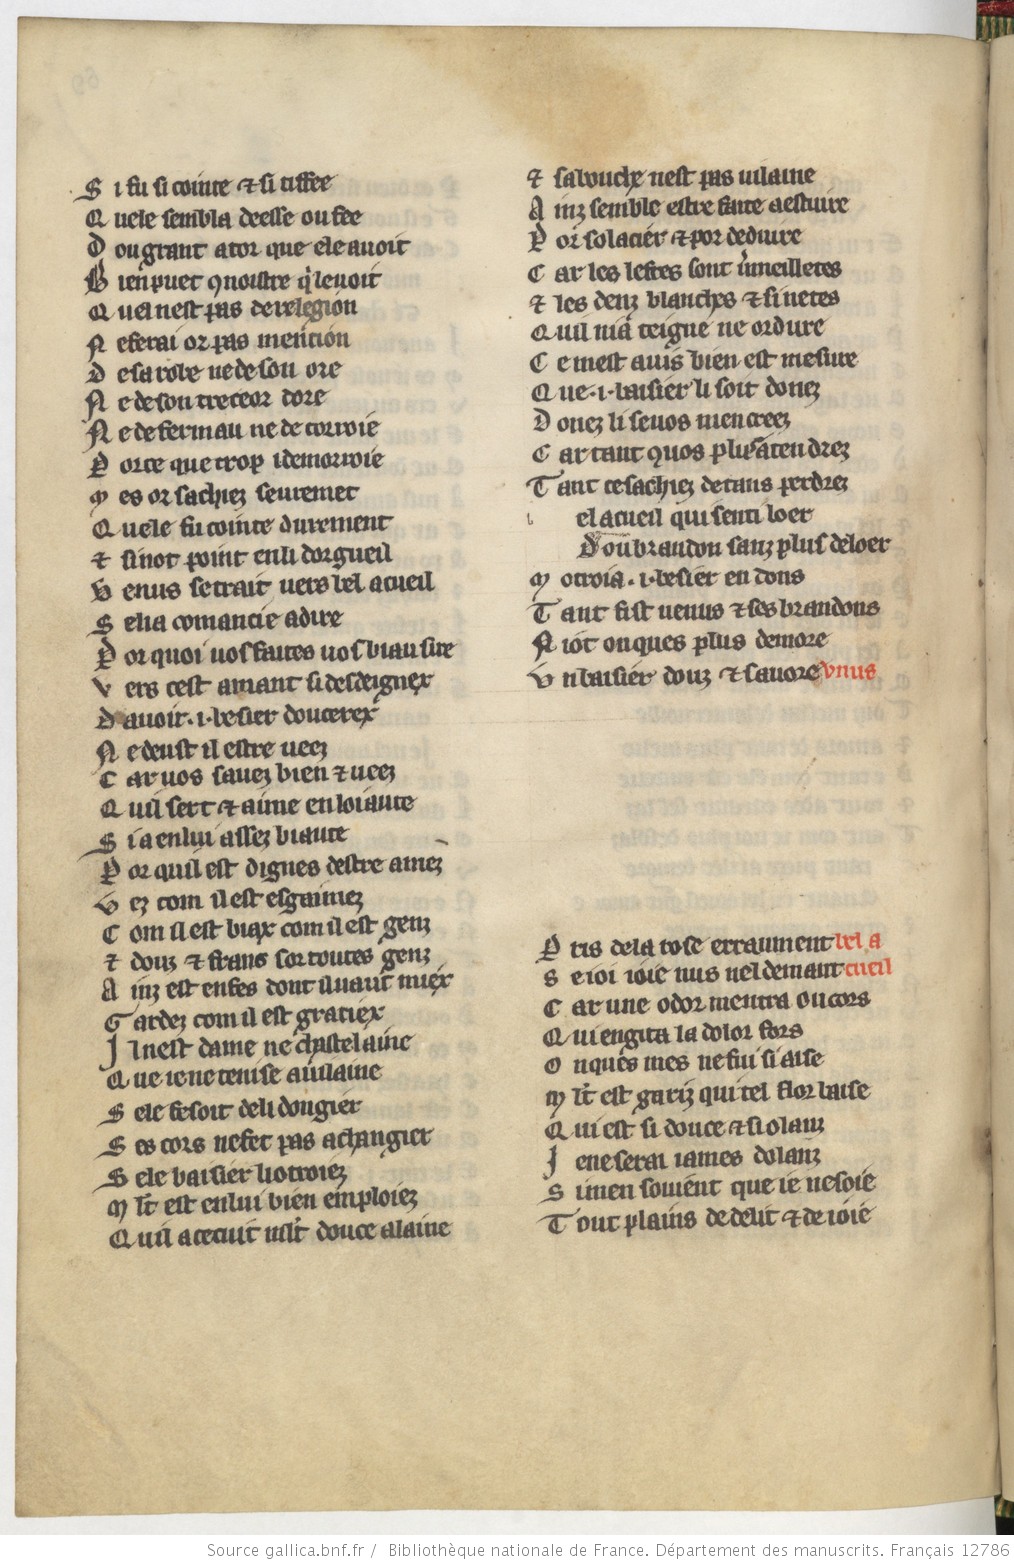 S i fu si cointe ⁊ si tiffee
Q uele sembla deesse ou fee
D ou grant ator que ele auoit
B ien puet ꝯnoistre q̓ le uoit
Q uel nest pas de relegion
N e ferai or pas mention
D e sa robe ne de son ore
N e de son treceor dore
N e de fermau ne de corroie
P orce que trop i demorroie
M es or sachiez seuremet
Q uele fu cointe durement
⁊ si not point en li dorgueil
V enus se trait uers bel acueil
S e lia comancie a dire
P or quoi uos faites uos biau sire
V ers cest amant si desdeignex
D auoir .i. besier doucerex
N e deust il estre ueez
C ar uos sauez bien ⁊ ueez
Q uil sert ⁊ aime en loiaute
S i a en lui assez biaute
P or quil est dignes destre amez
V ez com il est esgamez
C om il est biax com il est genz
⁊ douz ⁊ frans sor toutes genz
A inz est enfes dont il uaut miex
G ardez com il est gratiex
J l nest dame ne chastelaine
Q ue ie ne tenise a uilaine
S ele fesoit de li dongier
S es cors ne fet pas a changier
S ele baisier li otroiez
M lt̓ est en lui bien emploiez
Q uil a ce cuit mlt̓ douce alaine
⁊ sa bouche nest pas uilaine
A inz semble estre faite a estuire
P or solacier ⁊ por deduire
C ar les leures sont u̓meilletes
⁊ les denz blanches ⁊ si netes
Q uil ni a teigne ne ordure
C e mest auis bien est mesure
Q ue .i. baisier li soit donez
D onez li se uos men creez
C ar tant ꝯ uos plus atendrez
T ant ce sachiez de tans perdrez
el acueil qui senti loer
D ou brandon sanz plus deloer
M otroia .i. besier en dons
T ant fist uenus ⁊ ses brandons
N i ot onques plus demore
V n baisier douz ⁊ sauore vnus
P ris de la rose erraument bel a
S e ioi ioie nus nel demant cueil
C ar une odor mentra ou cors
Q ui en gita la dolor fors
O nques mes ne fui si aise
M lt̓ est gariz qui tel flor baise
Q ui est si douce ⁊ si olanz
J e ne serai iames dolanz
S i men souient que ie ne soie
T out plains de delit ⁊ de ioie
Source gallica.bnf.fr / Bibliothèque nationale de France. Département des manuscrits. Français 12786